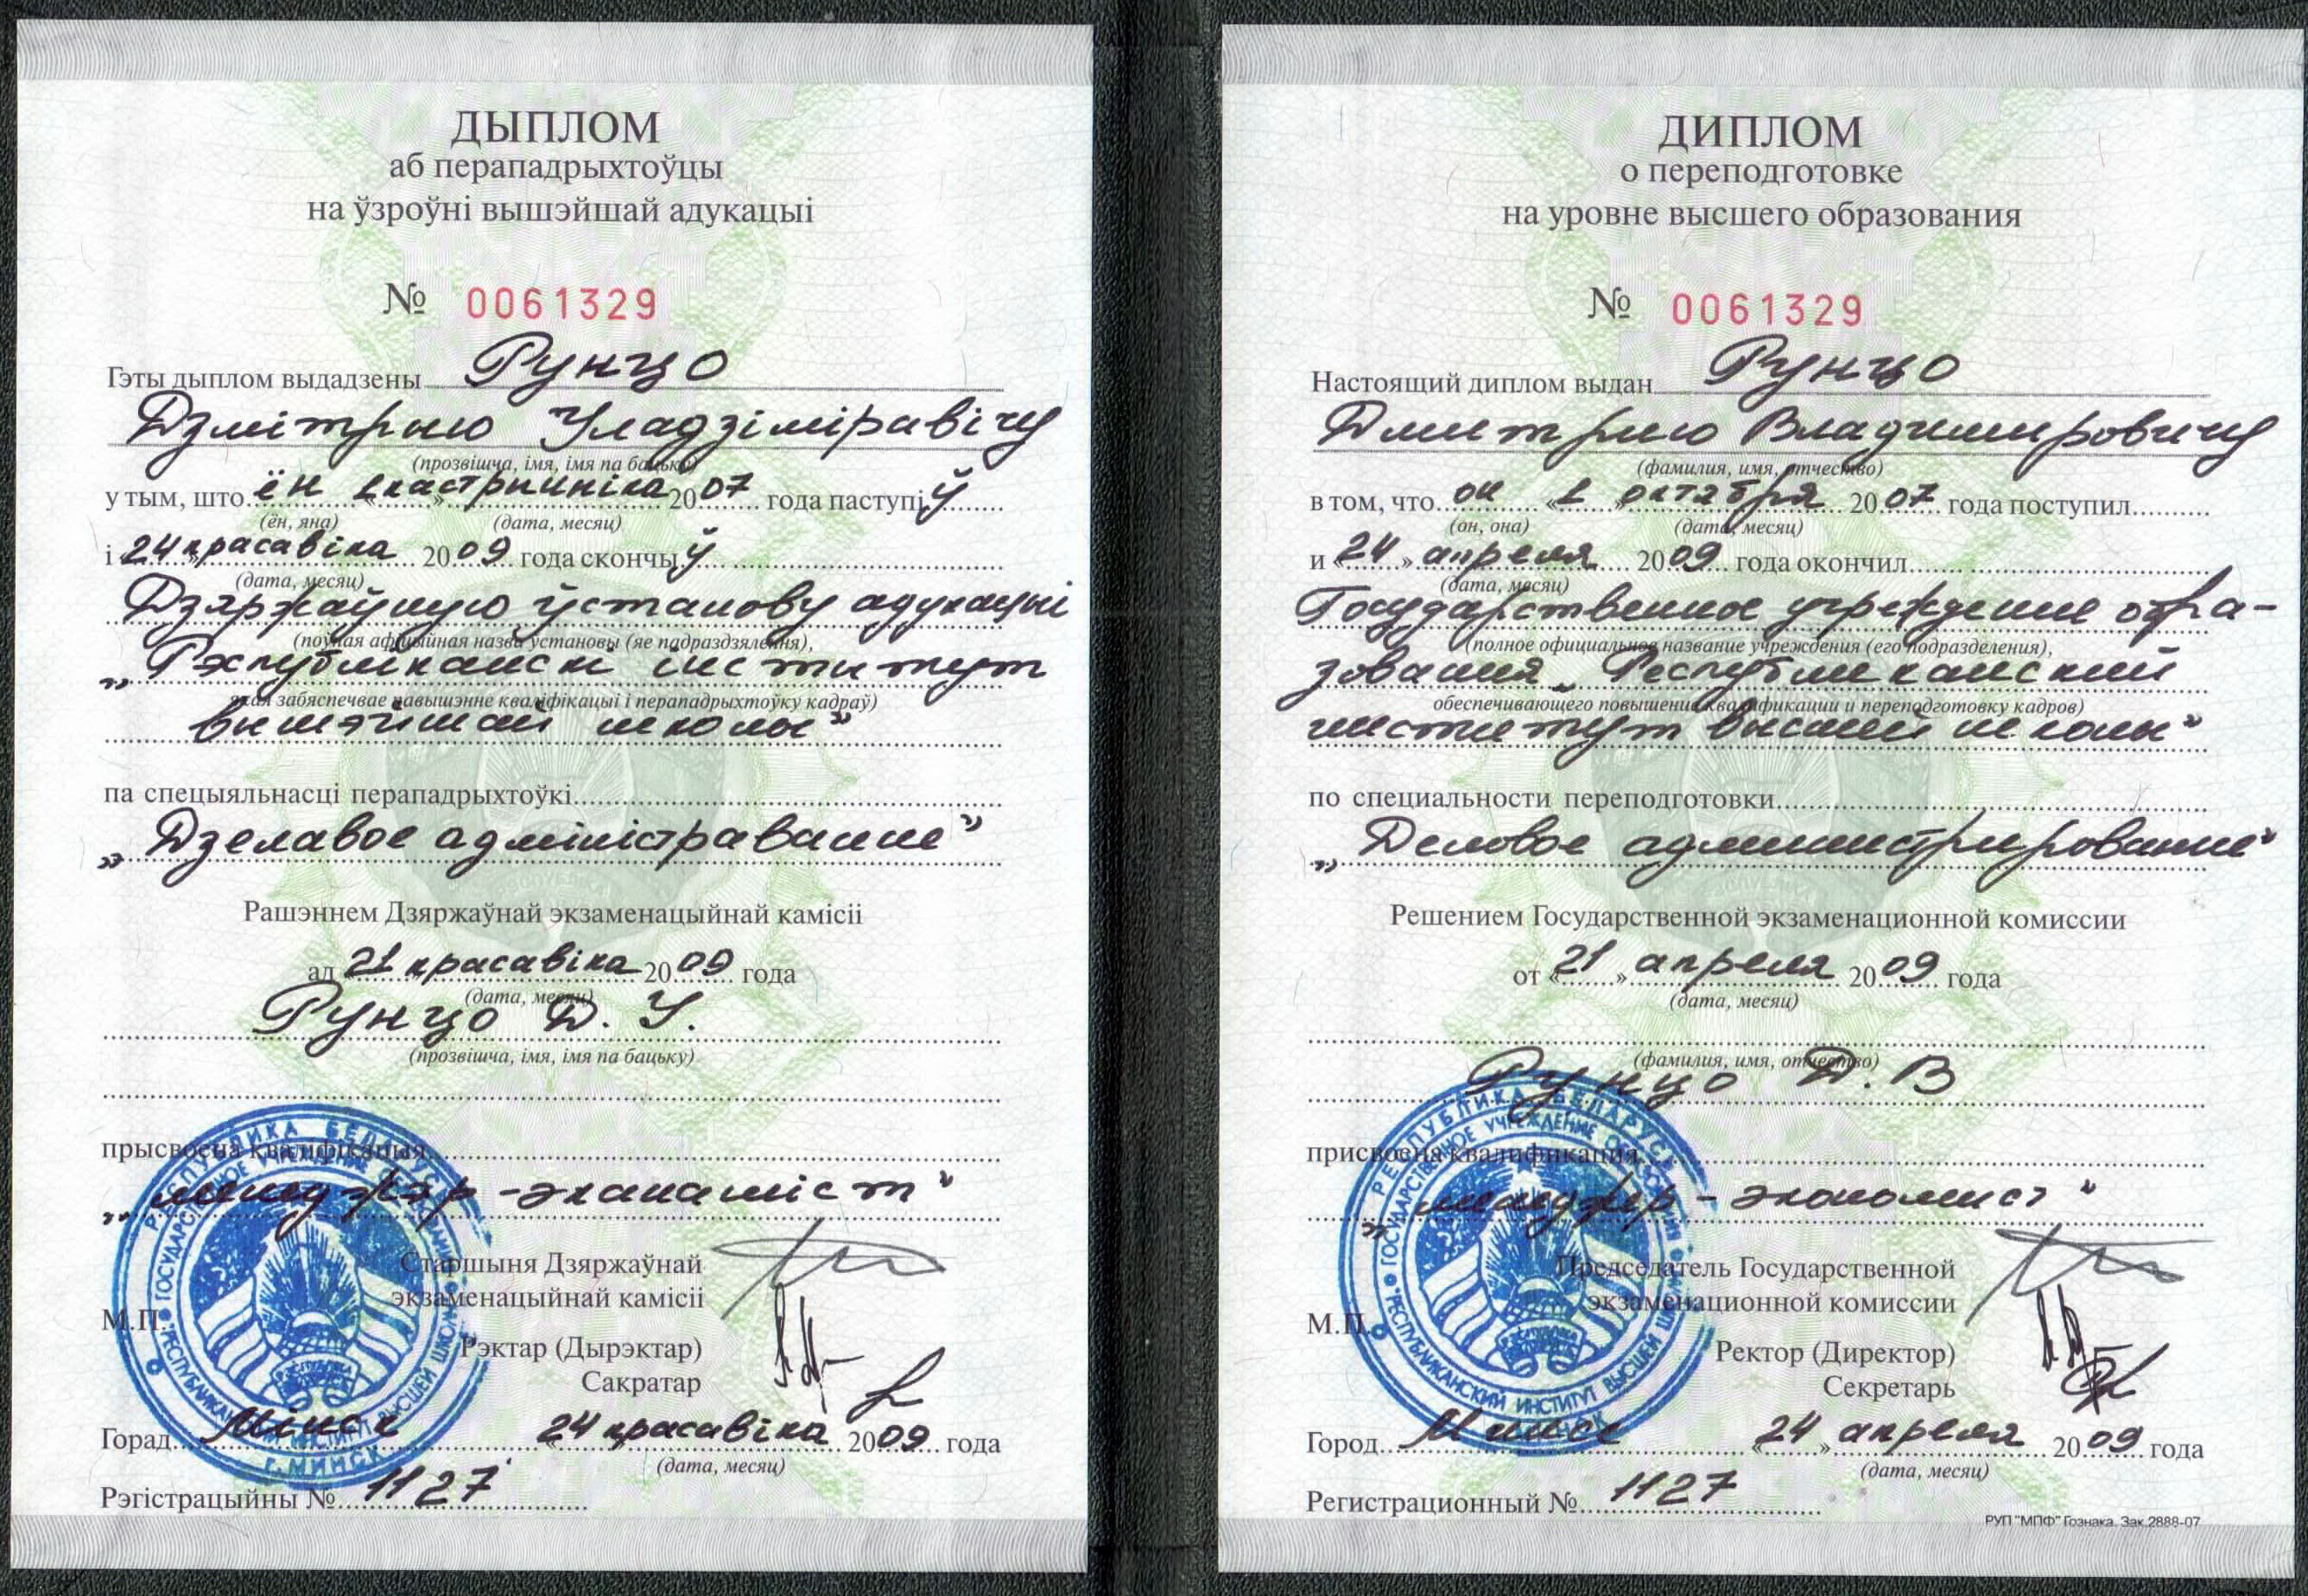 ДЫПЛОМ
аб перападрыхтоўцы
на ўзроўні вышэйшай адукацыі
№ 0061329
Гэты дыплом выдадзены Рунцо
Дзмітрыю Уладзіміравічу
(прозвішча, імя, імя па бацьку)
у тым, што ён 1 кастрычніка 2007 года паступіў
(ён, яна) (дата, месяц)
і 24 красавіка 2009 года скончыў
(дата, месяц)
Дзяржаўную ўстанову адукацыі
(поўная афіцыйная назва ўстановы (яе падраздзялення),
„Рэспубліканскі інстытут
якая забяспечвае павышэнне кваліфікацыі і перападрыхтоўку кадраў)
вышэйшай школы"
па спецыяльнасці перападрыхтоўкі
„Дзелавое адміністраванне"
Рашэннем Дзяржаўнай экзаменацыйнай камісіі
ад 21 красавіка 2009 года
(дата, месяц)
Рунцо Д. У.
(прозвішча, імя, імя па бацьку)
прысвоена кваліфікацыя
„менеджэр-эканаміст"
Старшыня Дзяржаўнай
экзаменацыйнай камісіі
М.П.
Рэктар (Дырэктар)
Сакратар
Горад Мінск 24 красавіка 2009 года
(дата, месяц)
Рэгістрацыйны № 1127
ДИПЛОМ
о переподготовке
на уровне высшего образования
№ 0061329
Настоящий диплом выдан Рунцо
Дмитрию Владимировичу
(фамилия, имя, отчество)
в том, что он «1» октября 2007 года поступил
(он, она) (дата, месяц)
и «24» апреля 2009 года окончил
(дата, месяц)
Государственное учреждение обра-
(полное официальное название учреждения (его подразделения),
зования „Республиканский
обеспечивающего повышение квалификации и переподготовку кадров)
институт высшей школы"
по специальности переподготовки
„Деловое администрирование"
Решением Государственной экзаменационной комиссии
от «21» апреля 2009 года
(дата, месяц)
(фамилия, имя, отчество)
Рунцо Д. В
присвоена квалификация
„менеджер-экономист"
Председатель Государственной
экзаменационной комиссии
М.П.
Ректор (Директор)
Секретарь
Город Минск «24» апреля 2009 года
(дата, месяц)
Регистрационный № 1127
РУП "МПФ" Гознака. Зак.2888-07
РЕСПУБЛИКА БЕЛАРУСЬ
ГОСУДАРСТВЕННОЕ УЧРЕЖДЕНИЕ ОБРАЗОВАНИЯ
РЕСПУБЛИКАНСКИЙ ИНСТИТУТ ВЫСШЕЙ ШКОЛЫ
г. МИНСК